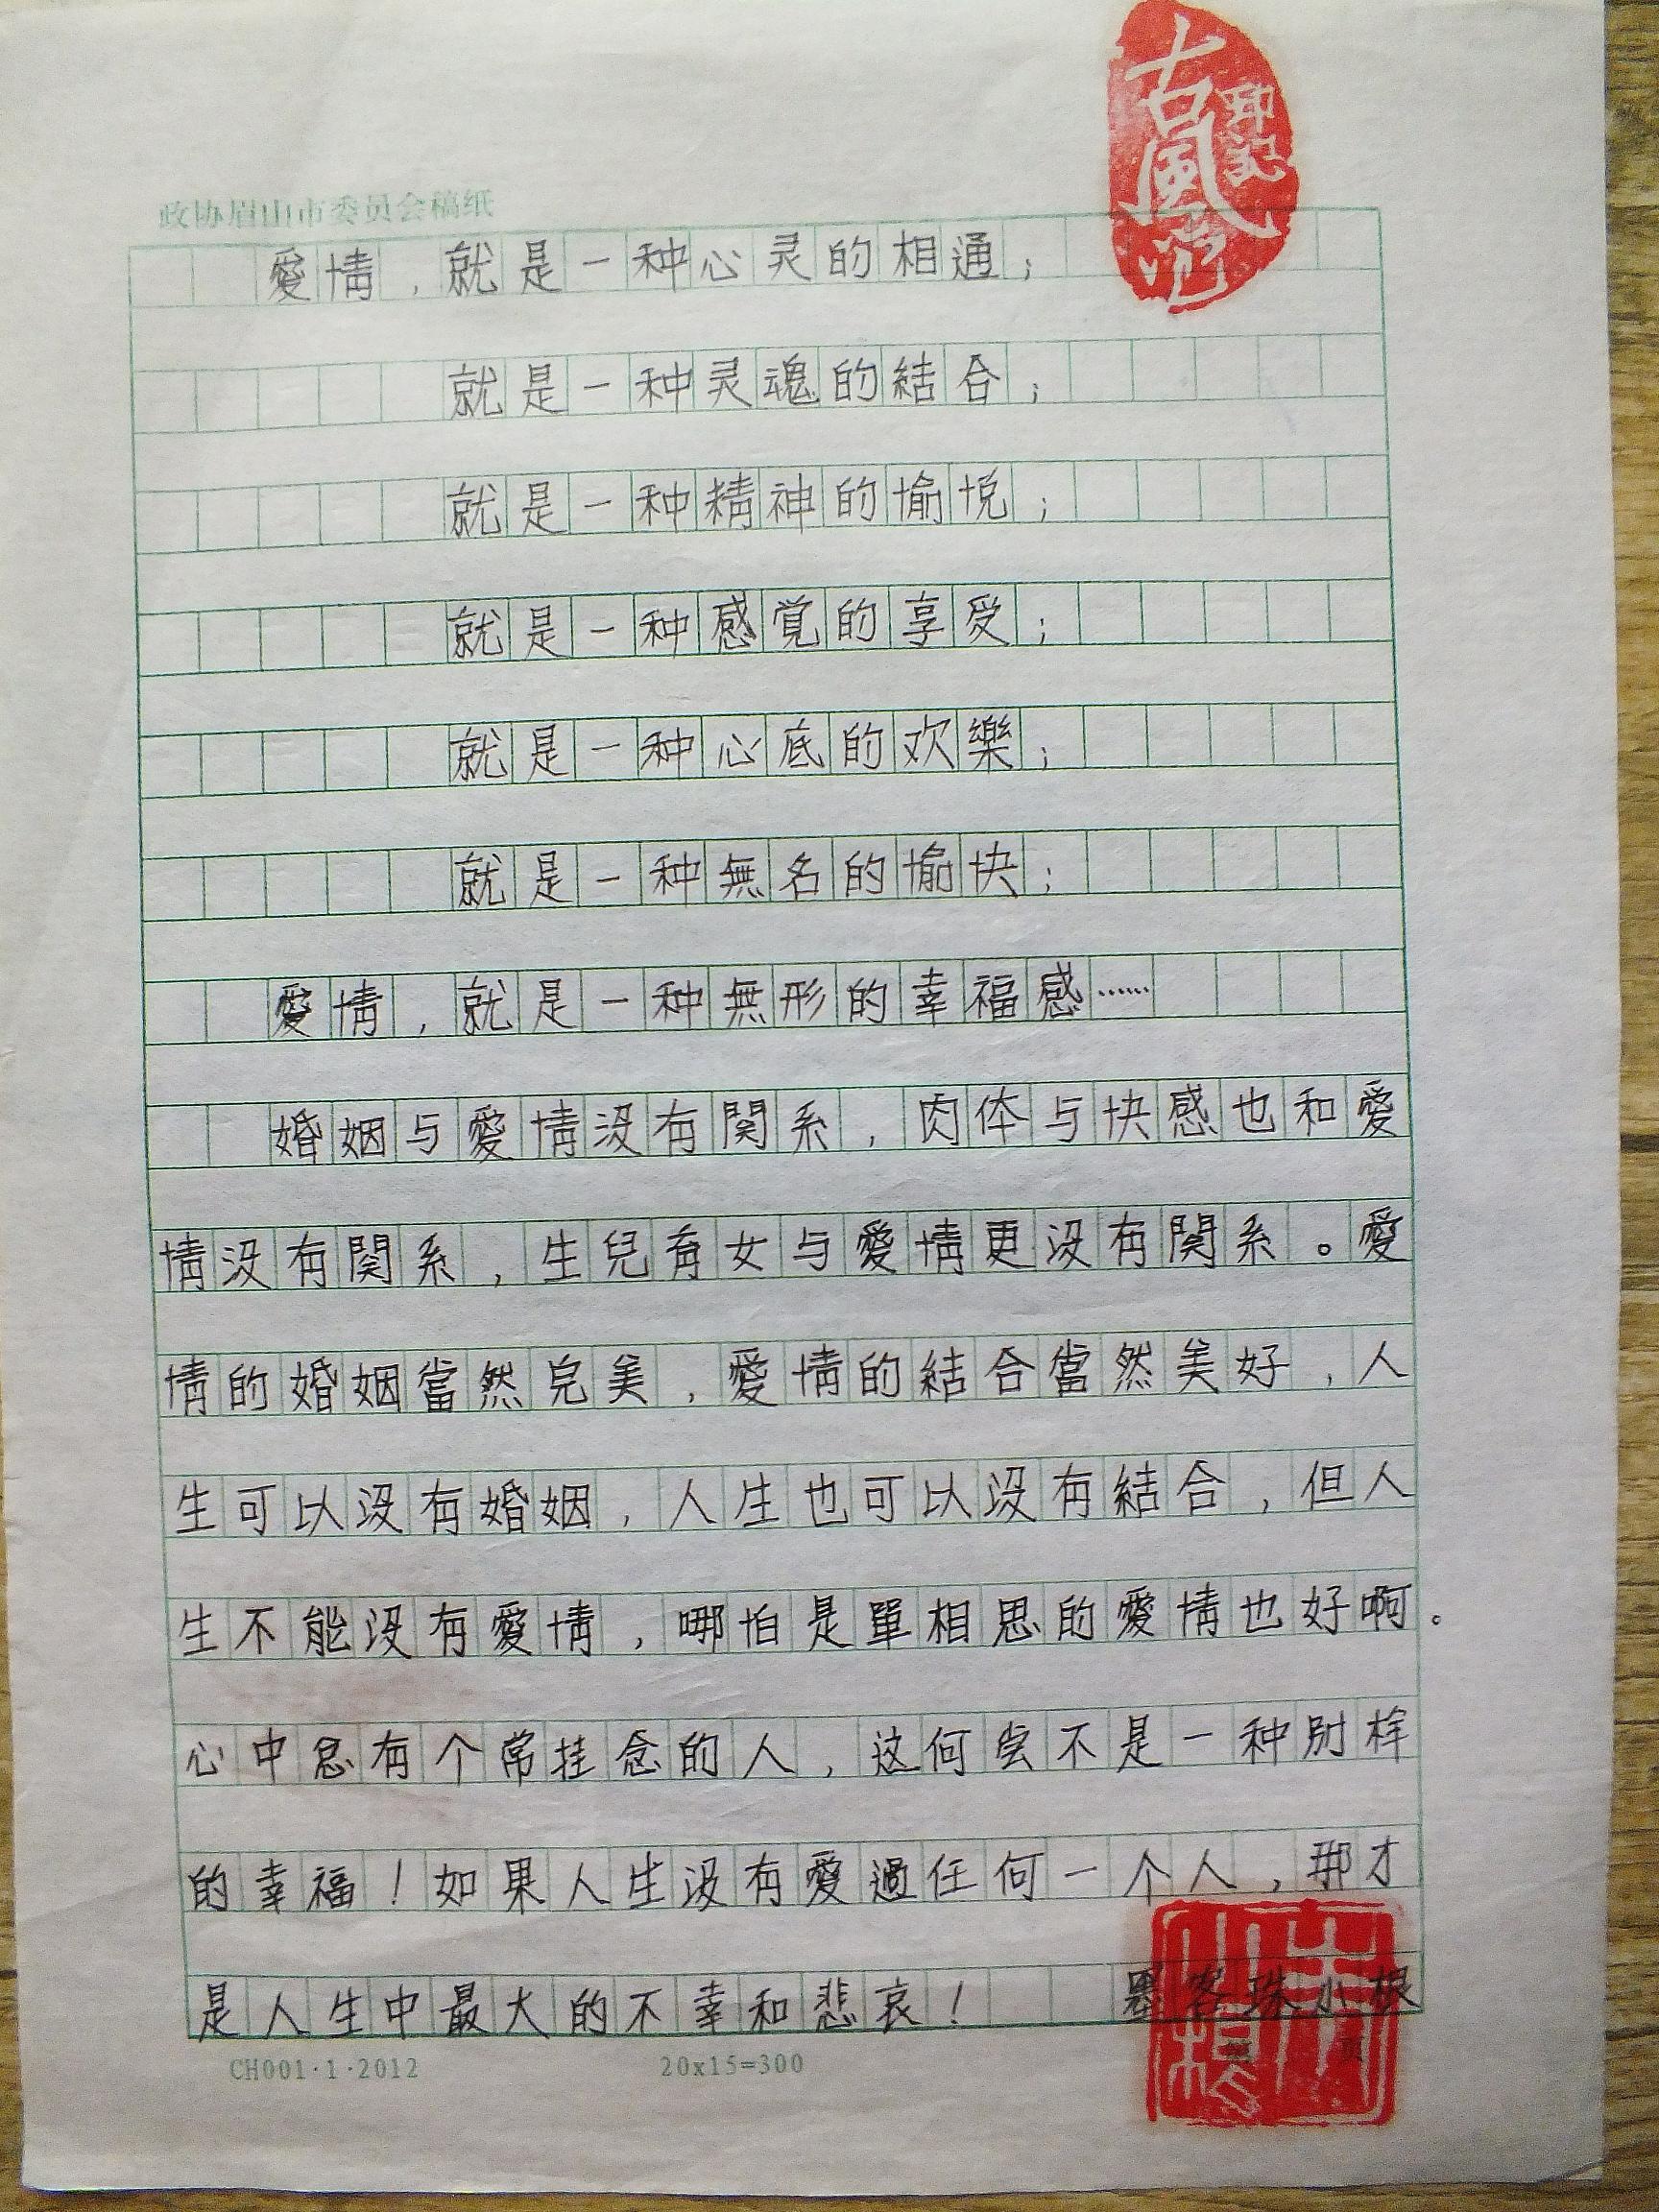 古風
印記
政协眉山市委员会稿纸
愛情，就是一种心灵的相通；
就是一种灵魂的結合；
就是一种精神的愉悦；
就是一种感覚的享受；
就是一种心底的欢樂；
就是一种無名的愉快；
愛情，就是一种無形的幸福感……
婚姻与愛情没有関系，肉体与快感也和愛
情没有関系，生兒育女与愛情更没有関系。愛
情的婚姻當然完美，愛情的結合當然美好，人
生可以没有婚姻，人生也可以没有結合，但人
生不能没有愛情，哪怕是單相思的愛情也好啊。
心中总有个常挂念的人，这何尝不是一种别样
的幸福！如果人生没有愛過任何一个人，那才
是人生中最大的不幸和悲哀！ 墨客珠小根
CH001·1·2012 20x15=300 页